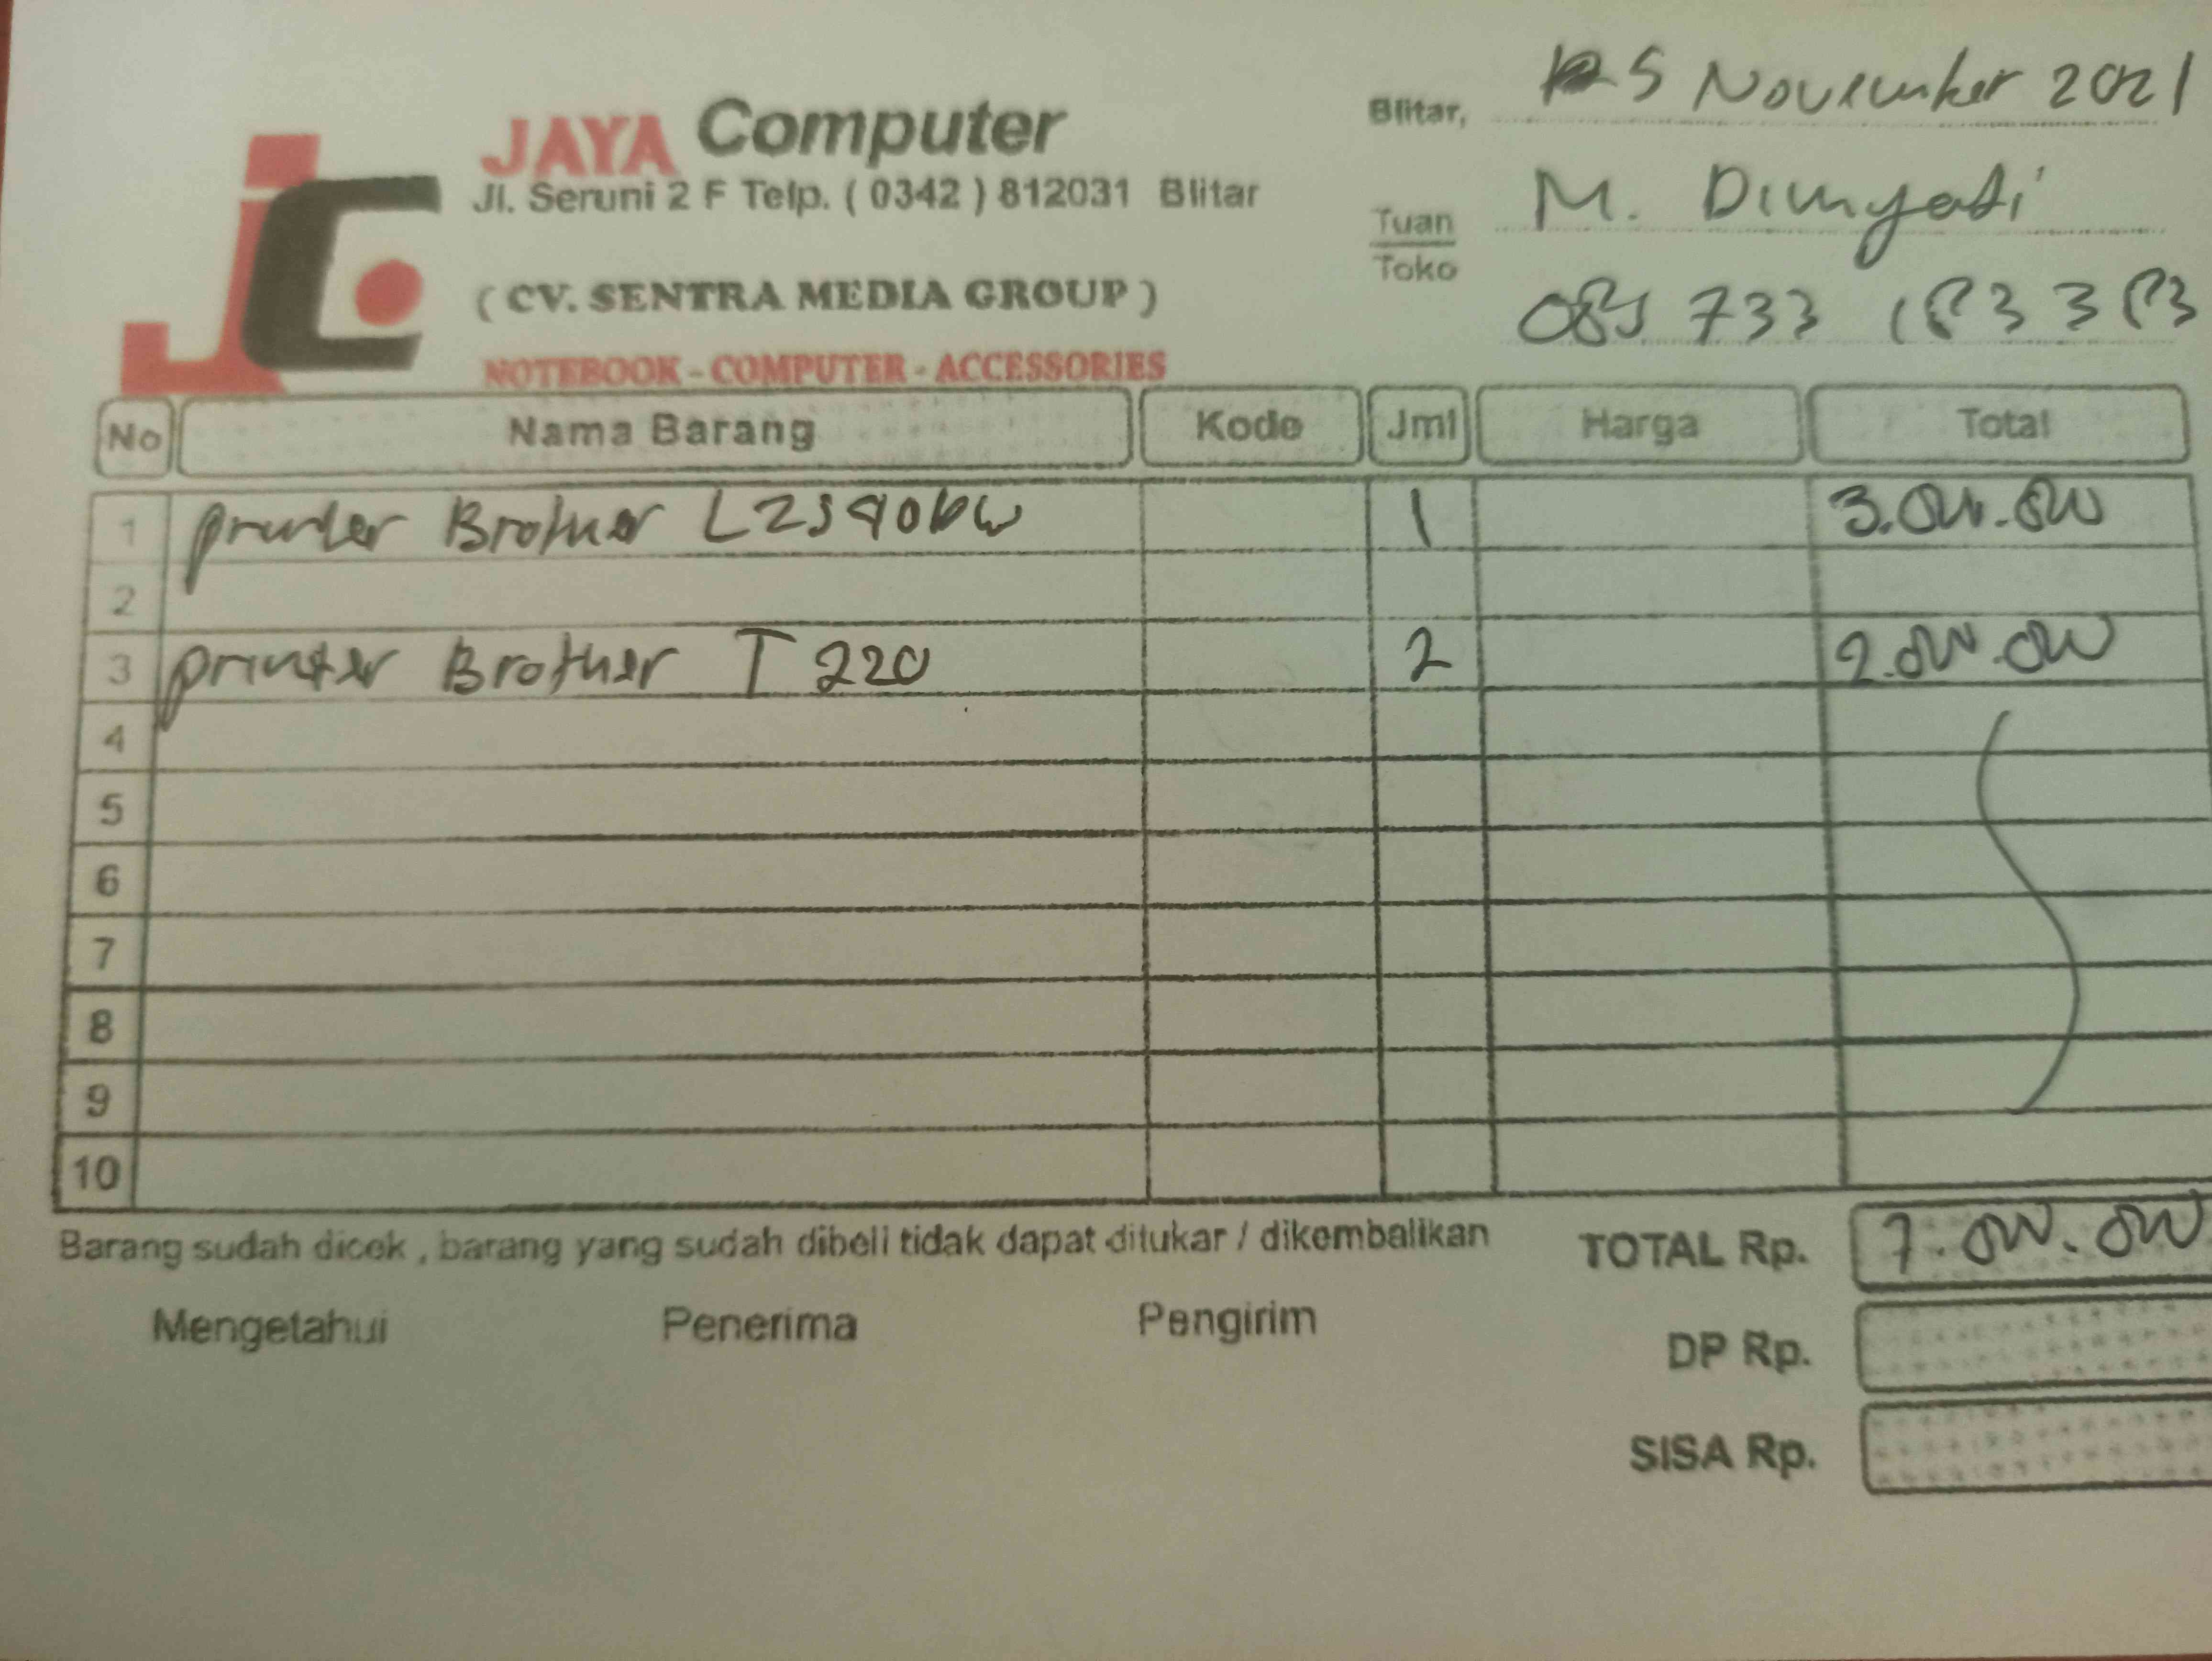 JAYA Computer
Jl. Seruni 2 F Telp. ( 0342 ) 812031 Blitar
( CV. SENTRA MEDIA GROUP )
NOTEBOOK - COMPUTER - ACCESSORIES
Blitar, 5 November 2021
Tuan M. Dimyati
Toko
085 733 183 383
No Nama Barang Kode Jml Harga Total
1 printer Brother 1 3.000.000
2
3 printer Brother T 220 2 2.000.000
4
5
6
7
8
9
10
Barang sudah dicek , barang yang sudah dibeli tidak dapat ditukar / dikembalikan
TOTAL Rp. 7.000.000
Mengetahui Penerima Pengirim
DP Rp.
SISA Rp.